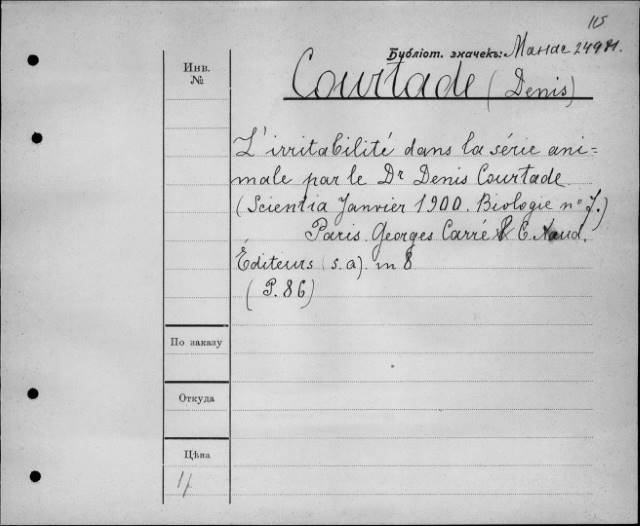 115
Бубліот. значекъ: Манас 24981.
Инв.
№
Courtade (Denis)
L'irritabilité dans la série ani=
male par le Dr Denis Courtade
(Scientia Janvier 1900. Biologie no 7.)
Paris. Georges Carré & C. Naud.
Éditeurs (s. a). in 8
(P. 86)
По заказу
Откуда
Цѣна